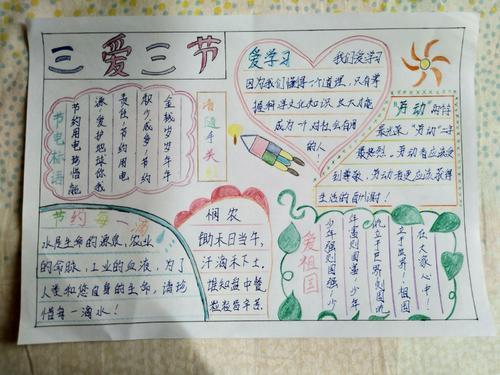 三爱三节
爱学习
我们爱学习
因为我们懂得一个道理,只有掌
握科学文化知识,长大才能
成为一个对社会有用
的人!
"劳动"最伟
最光荣,"劳动"二字
最热烈,劳动者应该受
到尊敬,劳动者更应该获得
生活的甜酬!
节电标语
金钱岁岁年年
积少成多,节约
责任,节约用电
源爱护地球你我
节约用电珍惜能
请随手关
节约每一滴水
水是生命的源泉,农业
的命脉,工业的血液,为了
人类和您自身的生命,请珍
惜每一滴水!
悯农
锄禾日当午,
汗滴禾下土。
谁知盘中餐
粒粒皆辛苦。
爱祖国
在大家心中!
立于世界!祖国
屹立于世界则国
年富则国富,少年
少年强则国强!少年